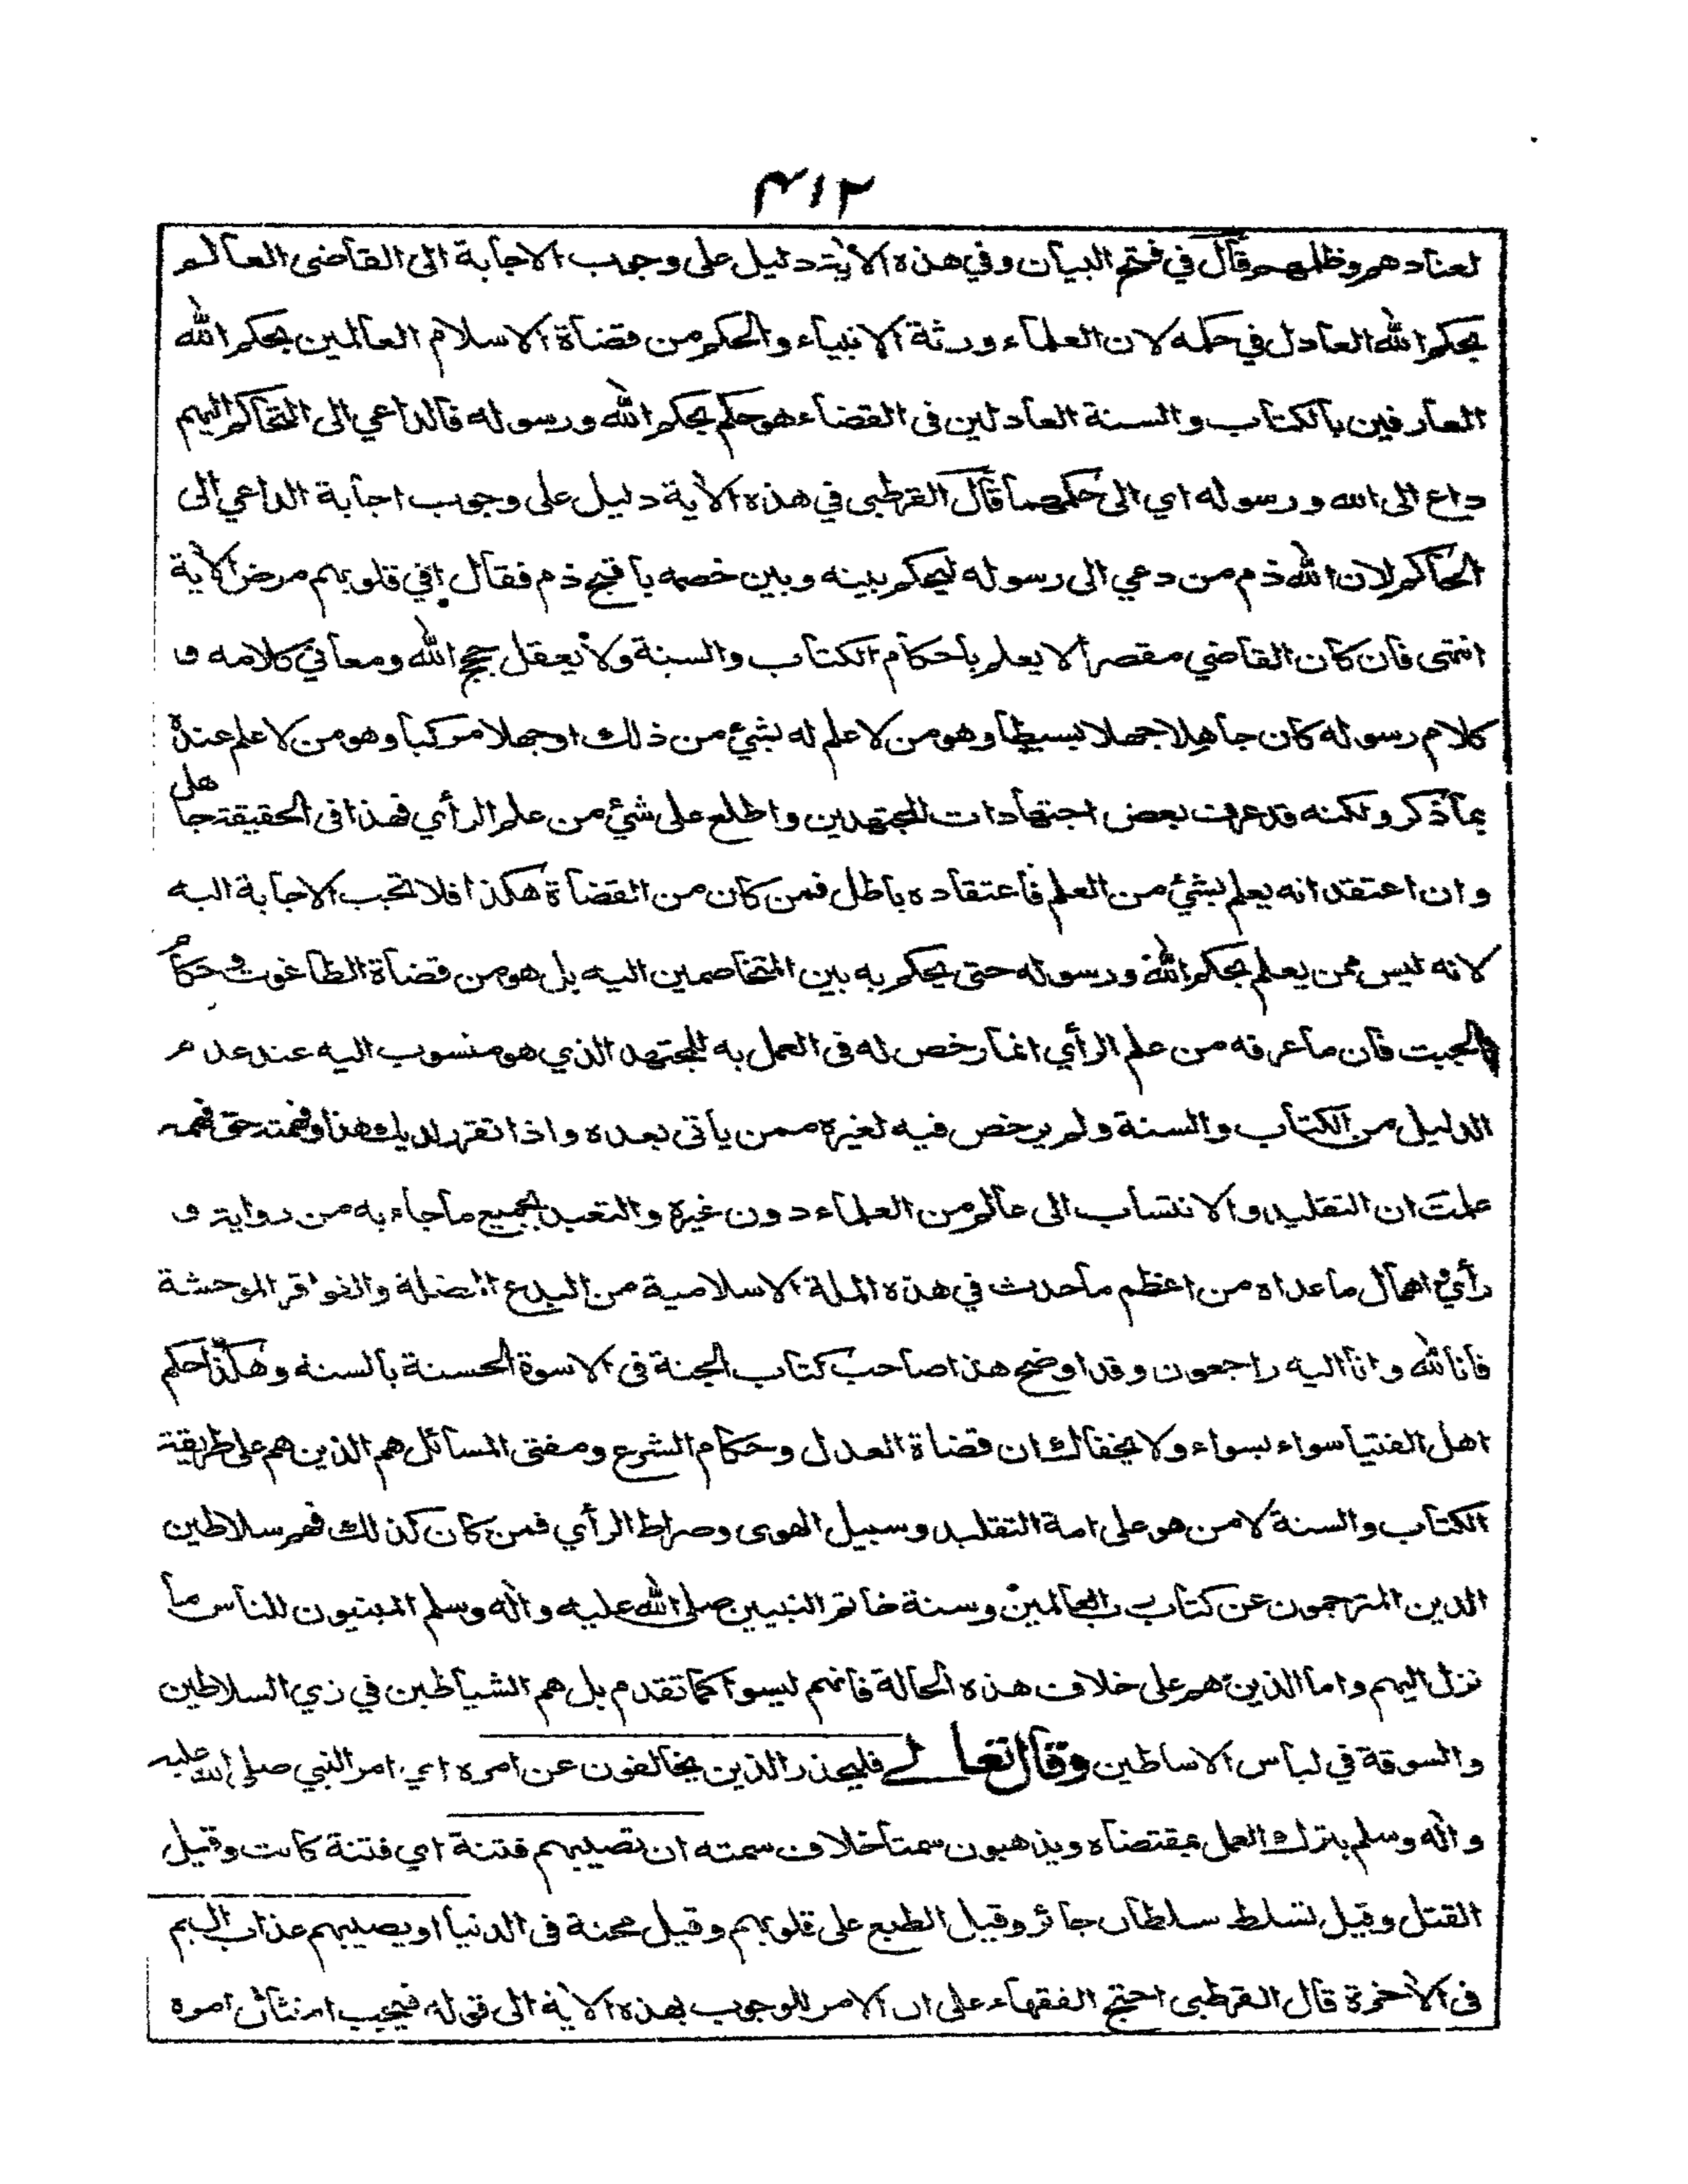 ٤١٢
لعنادهم وظلمهم وقال في فتح البيان وفي هذه الآية دليل على وجوب الاجابة الى القاضى العالم
بحكم الله العادل في حكمه لان العلماء ورثة الانبياء والحكم من قضاة الاسلام العالمين بحكم الله
العارفين بالكتاب والسنة العادلين فى القضاء هو حكم بحكم الله ورسوله فالداعي الى التحاكم اليهم
داع الى الله ورسوله اي الى حكمهما قال القرطبى في هذه الآية دليل على وجوب اجابة الداعي الى
الحاكم لان الله ذم من دعي الى رسوله ليحكم بينه وبين خصمه باقبح ذم فقال افي قلوبهم مرض الآية
انتهى فان كان القاضي مقصرا لا يعلم باحكام الكتاب والسنة ولا يعقل حجج الله ومعاني كلامه و
كلام رسوله كان جاهلا جهلا بسيطا وهو من لا علم له بشيء من ذلك او جهلا مركبا وهو من لا علم عنده
بما ذكر ولكنه قد عرف بعض اجتهادات المجتهدين واطلع على شيء من علم الرأي فهذا فى الحقيقة جاهل
وان اعتقد انه يعلم بشيء من العلم فاعتقاده باطل فمن كان من القضاة هكذا فلا تجب الاجابة اليه
لانه ليس ممن يعلم بحكم الله ورسوله حتى يحكم به بين المتخاصمين اليه بل هو من قضاة الطاغوت وحكام
الجبت فان ما عرفه من علم الرأي انما رخص له فى العمل به للمجتهد الذي هو منسوب اليه عند عدم
الدليل من الكتاب والسنة ولم يرخص فيه لغيره ممن يأتى بعده واذا تقرر لديك هذا وفهمته حق فهمه
علمت ان التقليد والانتساب الى عالم من العلماء دون غيره والتعبد بجميع ما جاء به من رواية و
رأي واهمال ما عداه من اعظم ما حدث في هذه الملة الاسلامية من البدع المضلة والفواقر الموحشة
فانا لله وانا اليه راجعون وقد اوضح هذا صاحب كتاب الجنة فى الاسوة الحسنة بالسنة وهكذا حكم
اهل الفتيا سواء بسواء ولا يخفاك ان قضاة العدل وحكام الشرع ومفتى المسائل هم الذين هم على طريقة
الكتاب والسنة لا من هو على امة التقليد وسبيل الهوى وصراط الرأي فمن كان كذلك فهم سلاطين
الدين المترجمون عن كتاب رب العالمين وسنة خاتم النبيين صلى الله عليه وآله وسلم المبينون للناس ما
نزل اليهم واما الذين هم على خلاف هذه الحالة فانهم ليسوا كما تقدم بل هم الشياطين في زي السلاطين
والسوقة في لباس الاساطين وقال تعالے فليحذر الذين يخالفون عن امره اي امر النبي صلى الله عليه
وآله وسلم بترك العمل بمقتضاه ويذهبون سمتا خلاف سمته ان تصيبهم فتنة اي فتنة كانت وقيل
القتل وقيل تسلط سلطان جائر وقيل الطبع على قلوبهم وقيل محنة فى الدنيا او يصيبهم عذاب اليم
فى الآخرة قال القرطبى احتج الفقهاء على ان الامر للوجوب بهذه الآية الى قوله فيجب امتثال امره